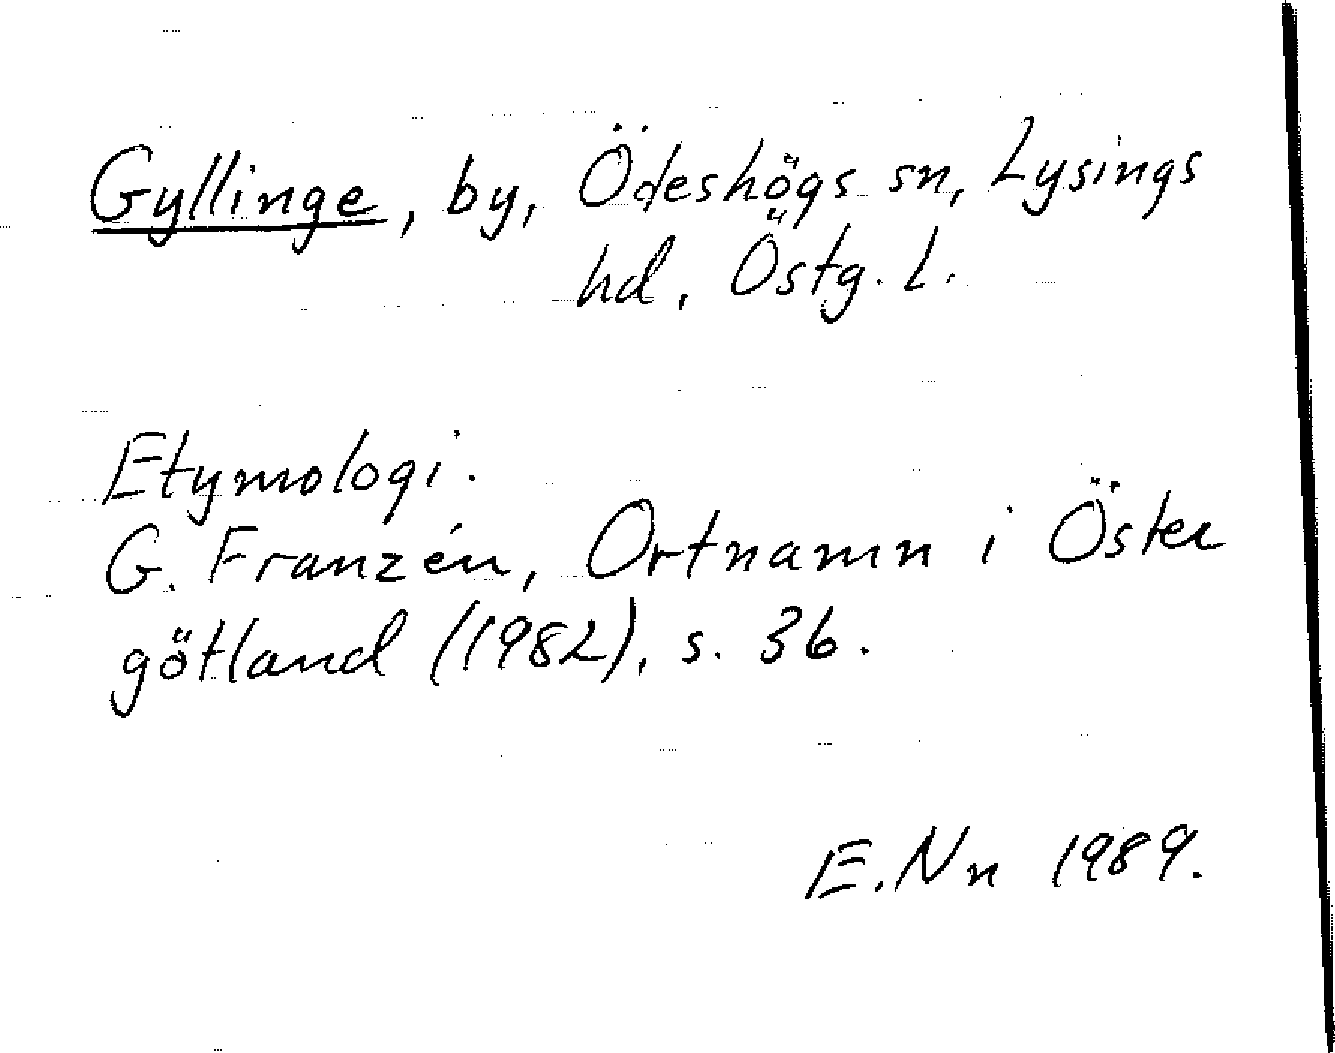 Gyllinge, by, Ödeshögs sn, Lysings
hd, Östg. l.
Etymologi.
G. Franzén, Ortnamn i Öster
götland (1982), s. 36.
E. Nn 1989.